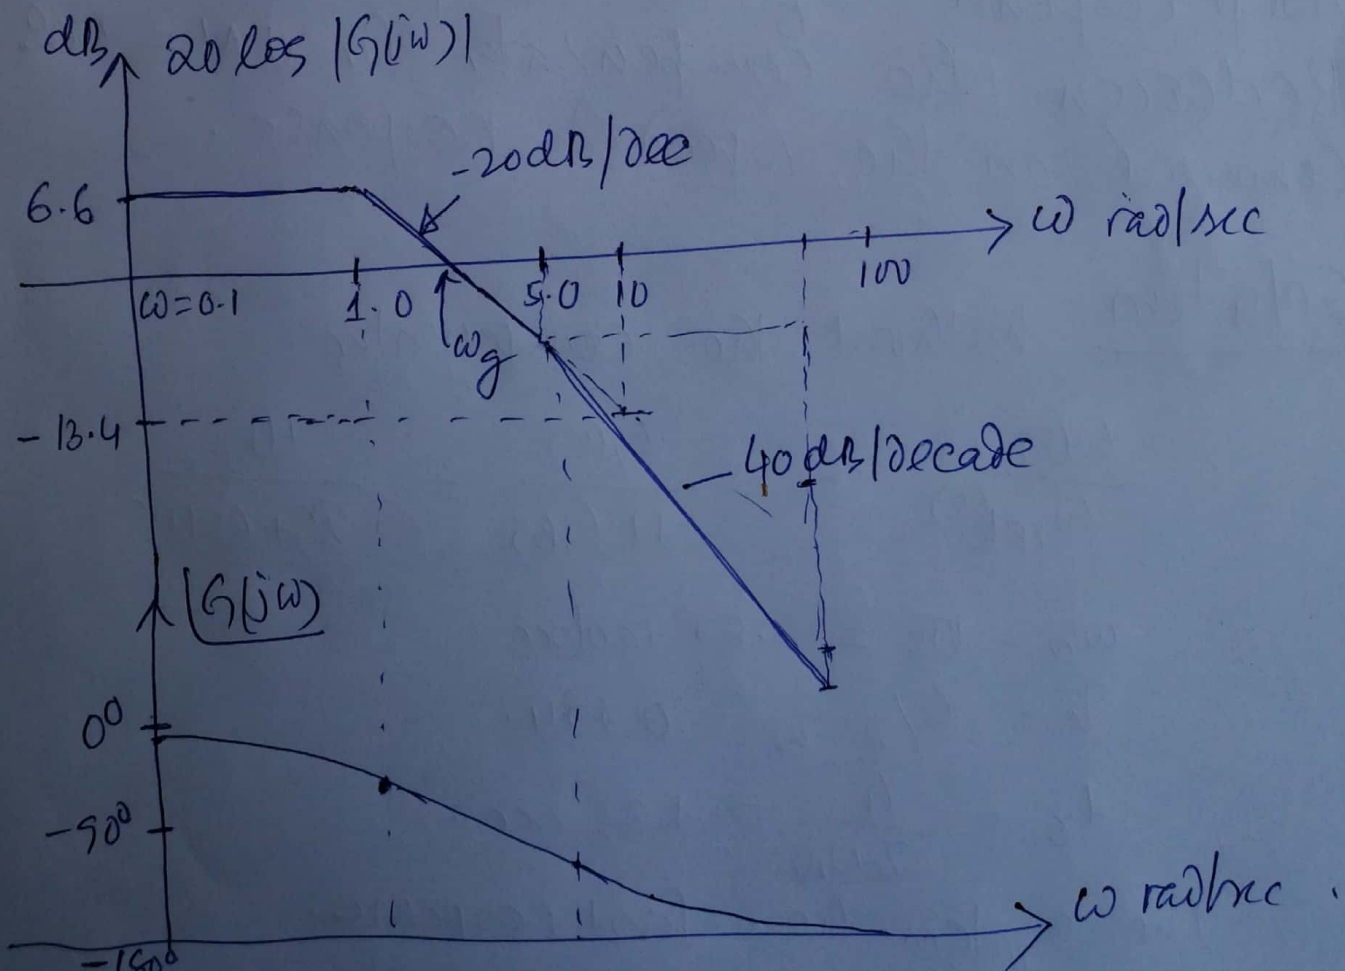 dB 20 log |G(jω)|
-20dB/dec
6.6
ω rad/sec
ω=0.1 1.0 5.0 10 100
ωg
-13.4
40 dB/decade
∠G(jω)
0°
-90°
ω rad/sec.
-180°